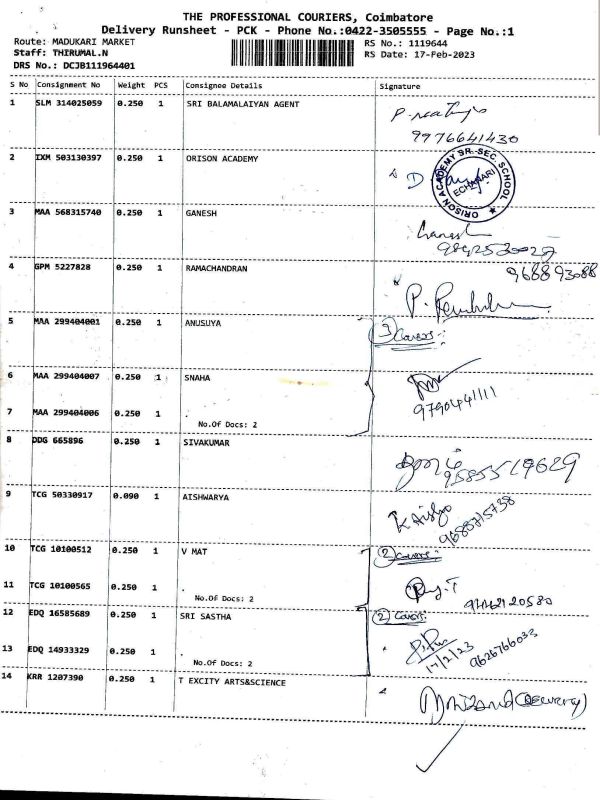 THE PROFESSIONAL COURIERS, Coimbatore
Delivery Runsheet - PCK - Phone No.:0422-3505555 - Page No.:1
Route: MADUKARI MARKET
Staff: THIRUMAL.N
DRS No.: DCJB111964401
RS No.: 1119644
RS Date: 17-Feb-2023
S No Consignment No Weight PCS Consignee Details Signature
1 SLM 314025059 0.250 1 SRI BALAMALAIYAN AGENT
9976641430
2 IXM 503130397 0.250 1 ORISON ACADEMY
ORISON ACADEMY SR. SEC. SCHOOL
3 MAA 568315740 0.250 1 GANESH
Ganesh
4 GPM 5227828 0.250 1 RAMACHANDRAN
5 MAA 299404001 0.250 1 ANUSUYA
3 Covers
6 MAA 299404007 0.250 1 SNAHA
9790441111
7 MAA 299404006 0.250 1
No.Of Docs: 2
8 DDG 665896 0.250 1 SIVAKUMAR
9585519629
9 TCG 50330917 0.090 1 AISHWARYA
9688715738
10 TCG 10100512 0.250 1 V MAT
2 Covers
11 TCG 10100565 0.250 1
No.Of Docs: 2
12 EDQ 16585689 0.250 1 SRI SASTHA
2 Covers
13 EDQ 14933329 0.250 1
No.Of Docs: 2
17/2/23
9626766033
14 KRR 1207390 0.250 1 T EXCITY ARTS&SCIENCE